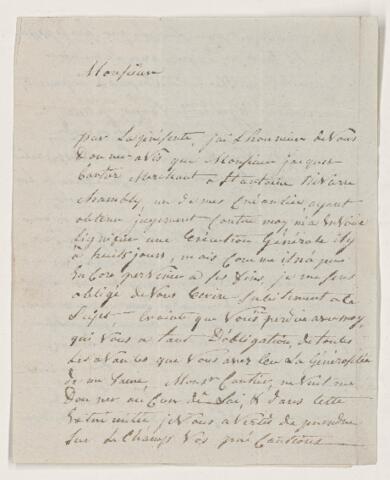 Monsieur
par La présente, jai Lhonneur de Vous
Donner avis que Monsieur jacques
Cartier Merchant a St antoine Riviere
Chambly, un de mes Créantier, ayant
obtenu jugement Contre moy, m'a Envoié
Signifier une Exécution Générale il y
a huit jours, mais Comme il n'a pas
En Core parvenue a ses fins, je me sens
obligé de Vous Ecrire subitement a Ce
Sujet, Crainte que Vous perdre avec moy,
qui Vous a tant D'obligation, de toutes
Les avances que Vous avez Eu La Générosité
de me faire, Monsr Cartier, ne Veut me
Donner au Cun délai, & dans Cette
Extremitée je Vous avertis de prendre
Sur Le Champs Vos précautions